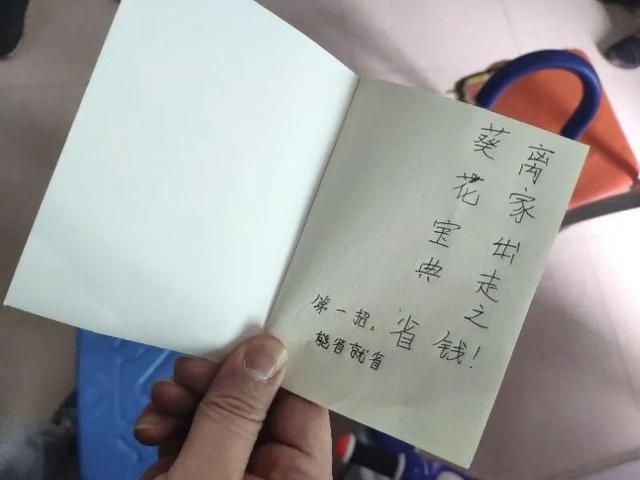 离家出走之
葵花宝典
第一招。省钱!
能省就省